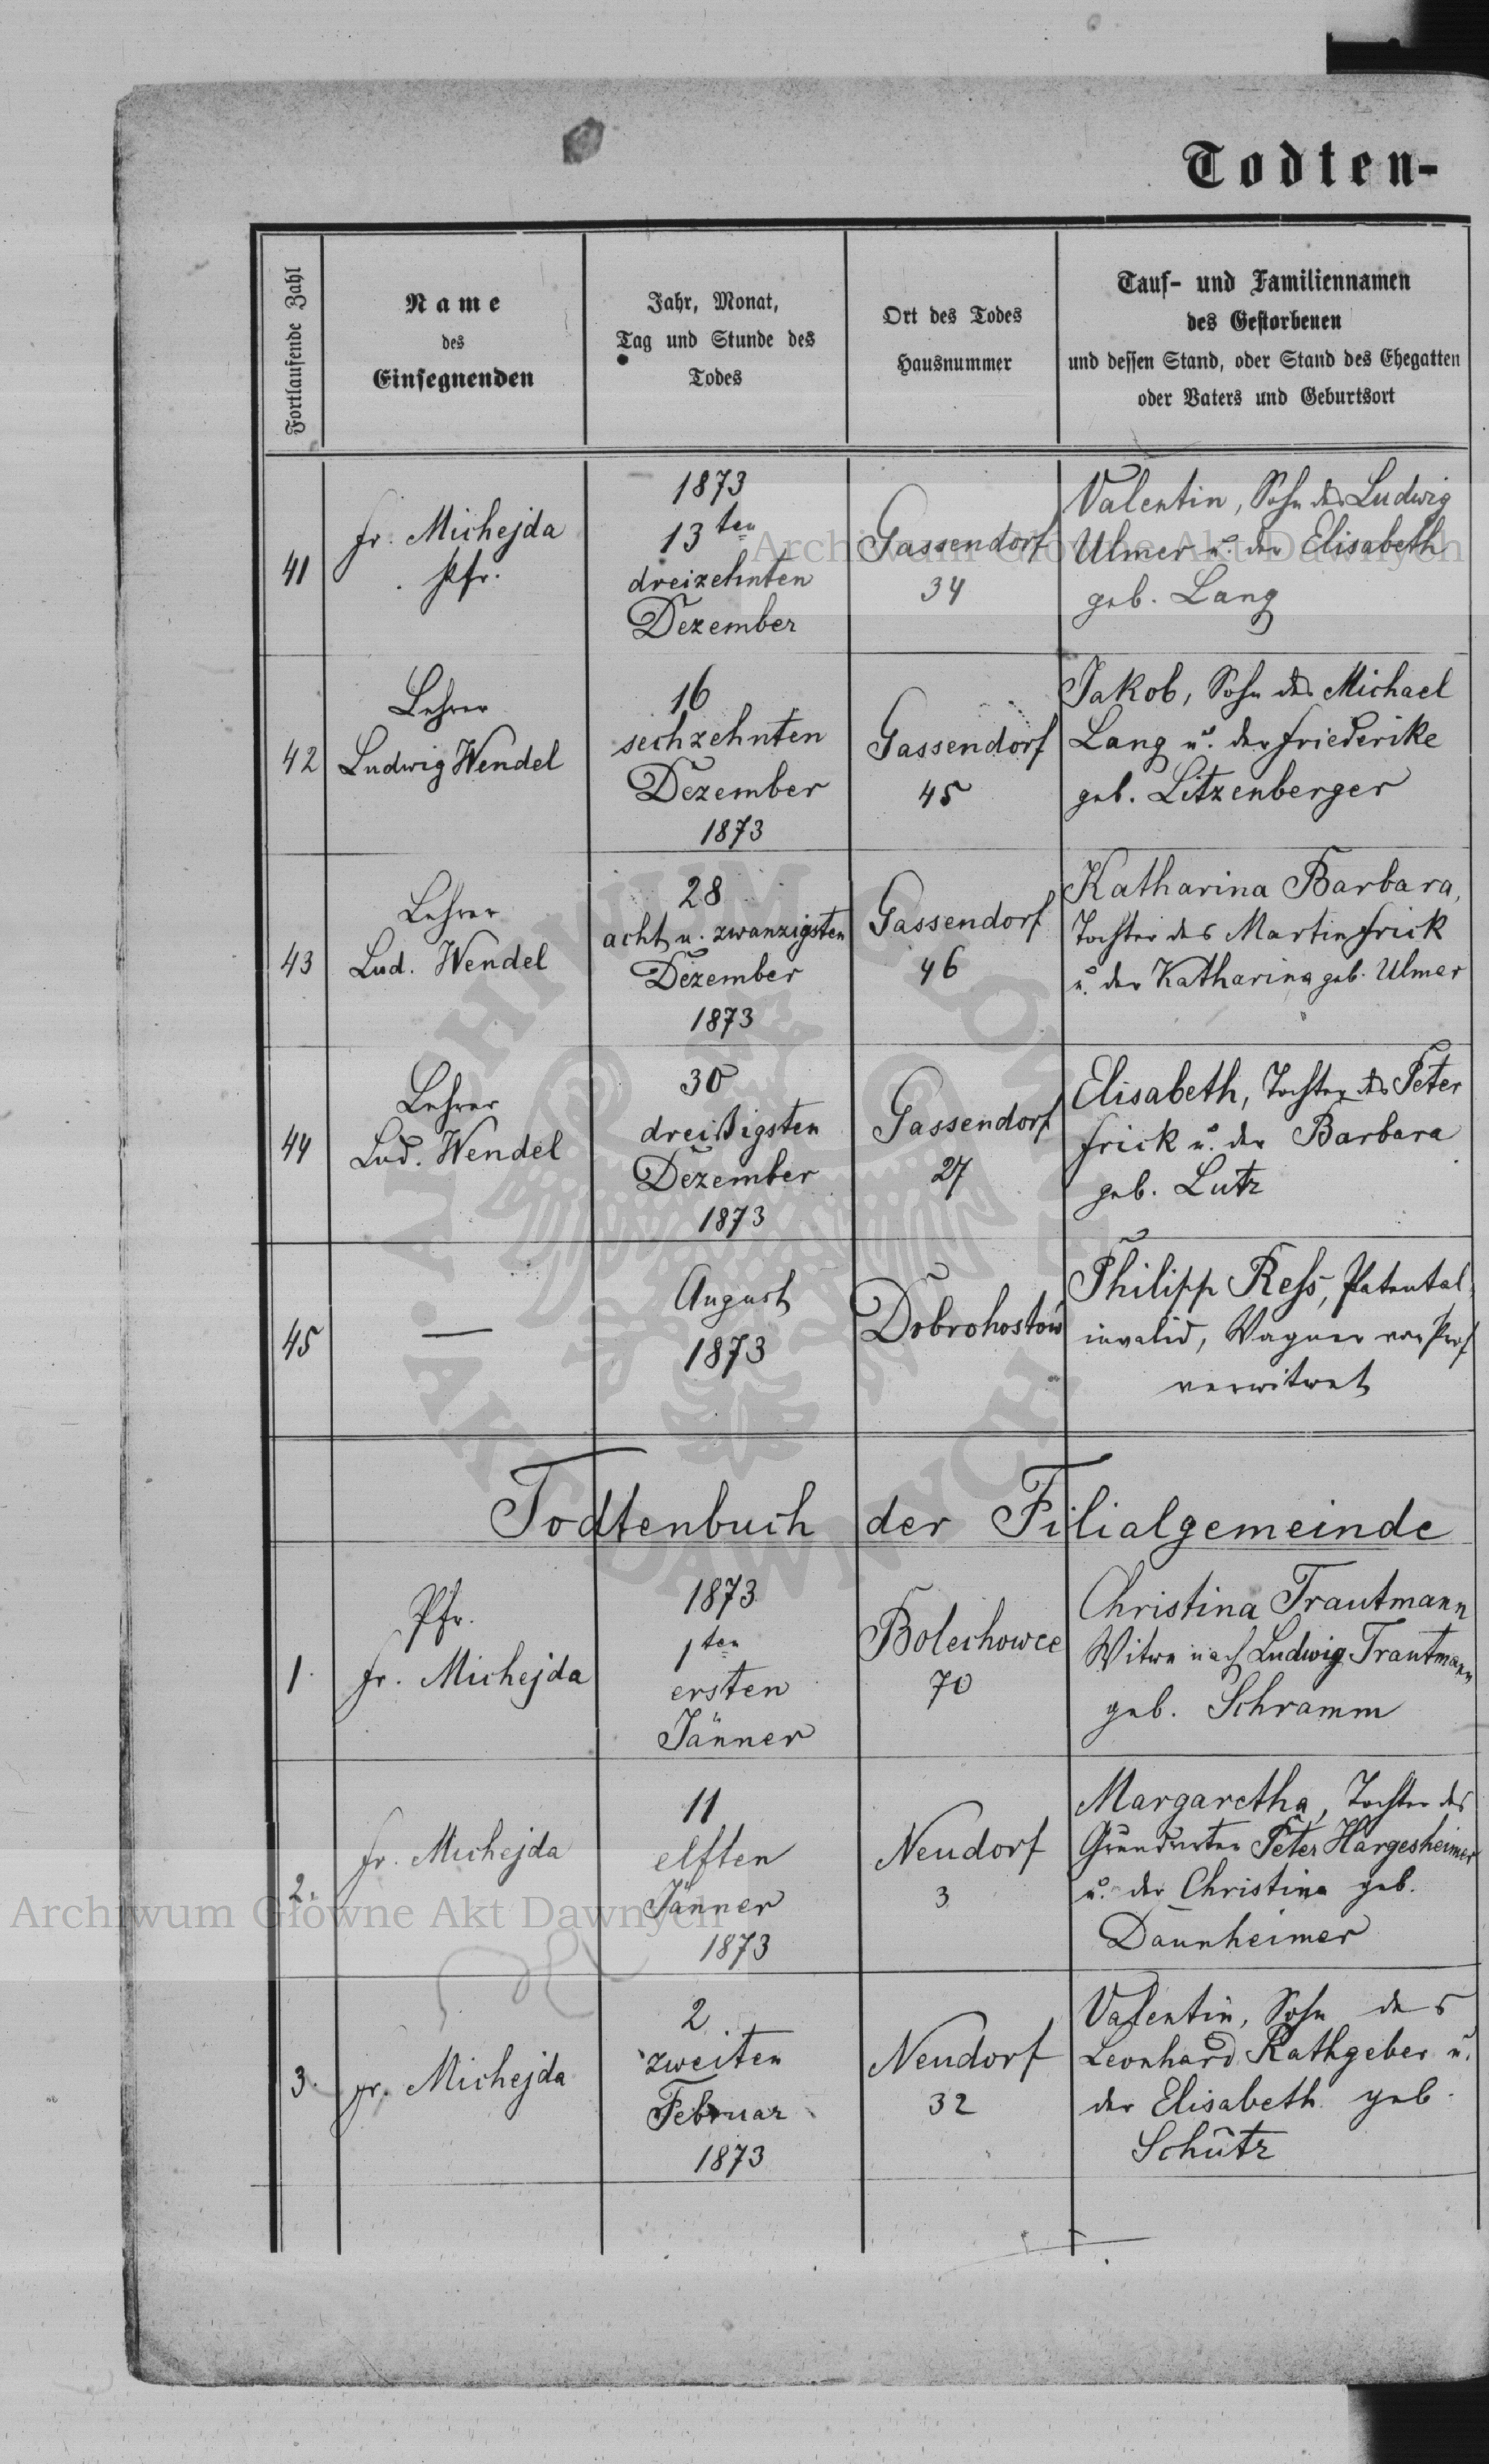 Todten-
Fortlaufende Zahl
Name
des
Einsegnenden
Jahr, Monat,
Tag und Stunde des
Todes
Ort des Todes
Hausnummer
Tauf- und Familiennamen
des Gestorbenen
und dessen Stand, oder Stand des Ehegatten
oder Vaters und Geburtsort
41
Fr. Michejda
Pfr.
1873
13ten
dreizehnten
Dezember
Gassendorf
34
Valentin, Sohn des Ludwig
Ulmer u. der Elisabeth
geb. Lang
42
Lehrer
Ludwig Wendel
16
sechzehnten
Dezember
1873
Gassendorf
45
Jakob, Sohn des Michael
Lang u. der Friederike
geb. Litzenberger
43
Lehrer
Lud. Wendel
28
acht u. zwanzigsten
Dezember
1873
Gassendorf
46
Katharina Barbara,
Tochter des Martin Frick
u. der Katharina geb. Ulmer
44
Lehrer
Lud. Wendel
30
dreißigsten
Dezember
1873
Gassendorf
27
Elisabeth, Tochter des Peter
Frick u. der Barbara
geb. Lutz
45
—
August
1873
Dobrohostów
Philipp Reß, Patental-
invalid, Wagner von Prof.
verwitwet
Todtenbuch der Filialgemeinde
1.
Pfr.
Fr. Michejda
1873
1ten
ersten
Jänner
Bolechowce
70
Christina Trautmann
Witwe nach Ludwig Trautmann
geb. Schramm
2.
Fr. Michejda
11
elften
Jänner
1873
Neudorf
3
Margaretha, Tochter des
Peter Hargesheimer
u. der Christina geb.
Daunheimer
3.
Fr. Michejda
2
zweiten
Februar
1873
Neudorf
32
Valentin, Sohn des
Leonhard Rathgeber u.
der Elisabeth geb.
Schütz
Archiwum Główne Akt Dawnych
Archiwum Główne Akt Dawnych
ARCHIWUM GŁÓWNE
AKT DAWNYCH